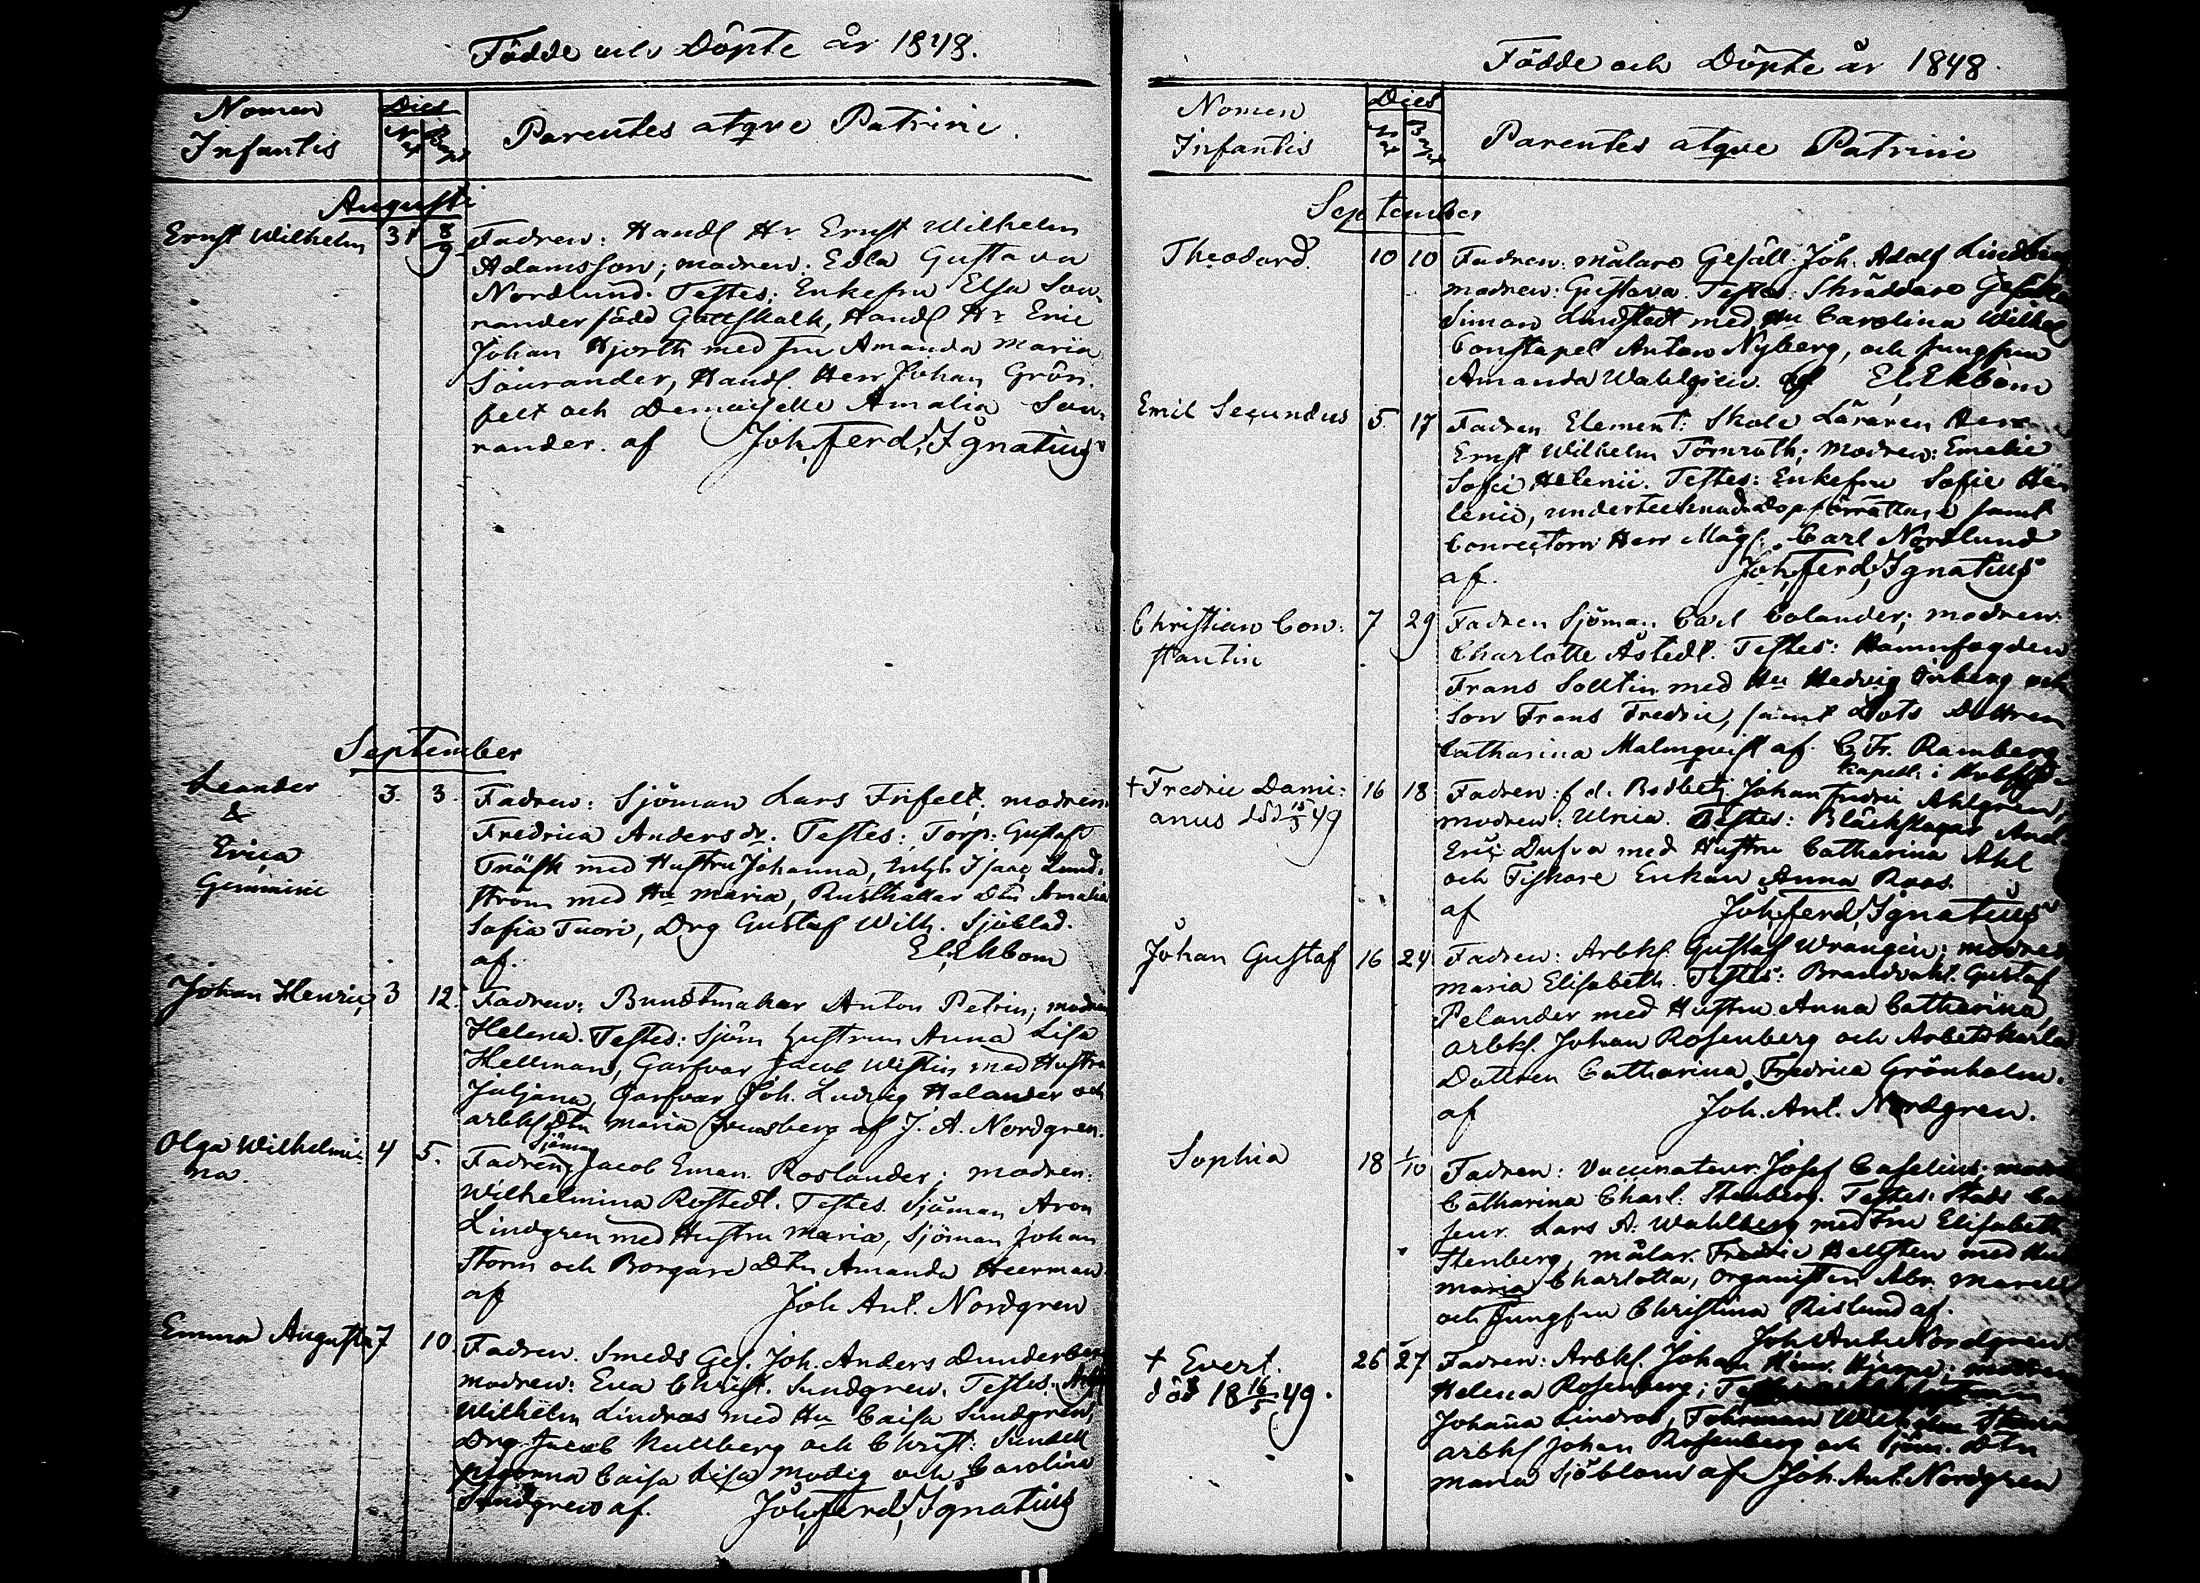 Födde och Döpte år 1848.
Nomen Infantis
Dies
Nat
Bapt
Parentes atqve Patrini.
Augusti
Ernst Wilhelm 31 8/9 Fadren: Handl Hr Ernst Wilhelm
Adamsson; modren: Edla Gustava
Nordlund. Testes: Enkefru Elsa Sou-
rander född Gottskalk, Handl Hr Eric
Johan Hjorth med fru Amanda Maria
Sourander, Handl. Herr Johan Grön-
felt och Demoiselle Amalia Sou-
rander. af Joh. Ferd. Ignatius
September
Leander 3. 3. Fadren: Sjöman Lars Frifelt; modren:
& Fredrica Andersdr. Testes: Torp. Gustaf
Erica Träsk med Hustru Johanna, Isaac Lund-
Gemini ström med Hu Maria, Rusthållar Dtn Amalia
Sofia Tuori, Drg Gustaf Wilh. Sjöblad.
af. El. Ekbom
Johan Henric, 3 12. Fadren: Buntmakar Anton Petrin; modren
Helena. Testes: Sjöm hustrun Anna Lisa
Hellman, Garfvar Jacob Wistin med Hustru
Juljana, Garfvar Joh. Ludvig Helander och
arbks Dtn Maria af J. A. Nordgren.
Olga Wilhelmi- 4 5. Fadren: Sjöman Jacob Eman. Roslander; modren:
na. Wilhelmina Rostedt. Testes. Sjöman Aron
Lindgren med Hustru Maria, Sjöman Johan
Storm och Borgare Dtn Amanda Heerman
af Joh Ant. Nordgren
Emma Augusta 7 10. Fadren. Smeds Ges. Joh. Anders Dunderberg
modren: Eva Christ. Sundgren. Testes.
Wilhelm Lindroos med Hu Caisa Sundgren,
Drg. Jacob Kullberg och Christ: Sundell
pigorna Caisa Lisa Modig och Carolina
Sundgren af. Joh. Ferd. Ignatius
Födde och Döpte år 1848.
Nomen Infantis
Dies
Nat
Bapt
Parentes atqve Patrini
September
Theodord. 10 10 Fadren: målare Gesäll. Joh. Adolf Lindberg
modren: Gustava. Testes: Skräddare Gesälle
Simon Lindstedt med Hu Carolina Wilhel
Constapel Anton Nyberg, och Jungfrun
Amanda Wahlgren. af El. Ekbom
Emil Secundus 5 17 Fadren Element: Skole Läraren Herr
Ernst Wilhelm Törnroth; Modren: Emelie
Sofie Helenii. Testes: Enkefru Sofie He-
lenii, undertecknad Dopförrättare samt
Conrectorn Herr Mag: Carl Nordlund
af. Joh. Ferd. Ignatius
Christian Con- 7 29 Fadren Sjöman Carl Colander; modren:
stantin Charlotte Åstedt. Testes: Hamnfogden
Frans Solltin med Hu Hedvig och
Son Frans Fredric, samt Lots Dottren
Catharina Malmqvist af. C. Fr. Ramberg
Kapell: i
† Fredric Dami- 16 18 Fadren: f. d. Johan Fredric Ahlgren,
anus död 15/5 49 modren: Ulrica. Testes: Bläckslagar And.
Eric Dufva med Hustru Catharina Ahl
och Fiskare Enkan Anna Roos.
af Joh. Ferd. Ignatius
Johan Gustaf 16 24 Fadren: Arbks. Gustaf Wrangén; modren
Maria Elisabeth. Testes: Brandvakt. Gustaf
Pelander med Hustru Anna Catharina,
arbks. Johan Rosenberg och Arbetskarls
Dottren Catharina Fredrica Grönholm.
af Joh. Ant. Nordgren.
Sophia 18 1/10 Fadren: Vaccinateur. Josef Caselius; modren
Catharina Charl: Stenberg. Testes: Stads Cas
seur Lars A. Wahlberg med Fru Elisabeth
Stenberg, målar. Fredric Hellsten med Hu
Maria Charlotta, Organisten Abr. Morell
och Jungfru Christina Rislund af.
Joh Ant. Nordgren.
† Evert. 26 27 Fadren: Arbks. Johan Hjerpe; modren
död 18 16/5 49. Helena Rosenberg;
Johanna Lindroos, Forman Wilhelm
arbks Johan Rosenberg och Sjöm. Dtn
Maria Sjöblom af Joh. Ant. Nordgren